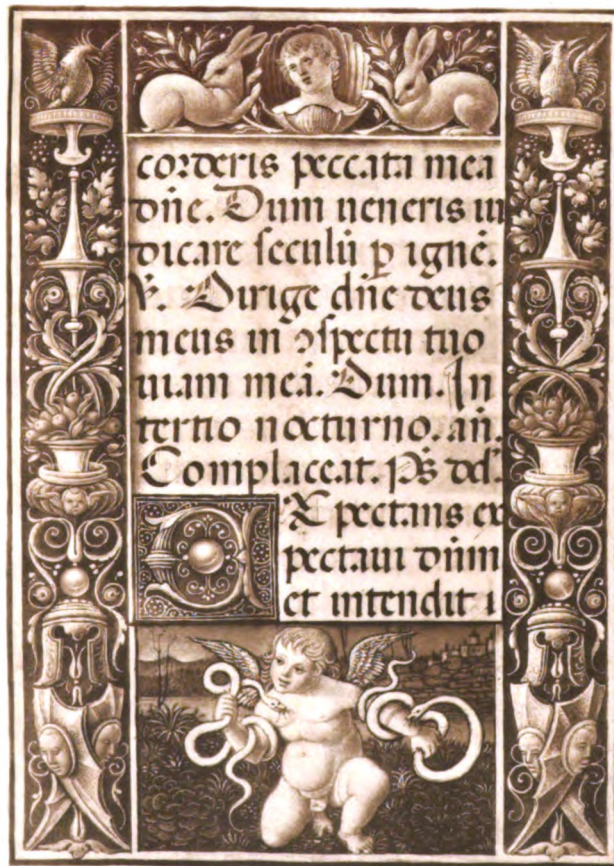 corderis peccata mea
dñe. Dum ueneris iu
dicare seculũ p̱ ignẽ.
℣. Dirige dñe deus
meus in ↄspectu tuo
uiam meã. Dum. In
tertio nocturno. añ.
Complaceat. p̃s dd̃.
EXpectans ex
pectaui dñm
et intendit i